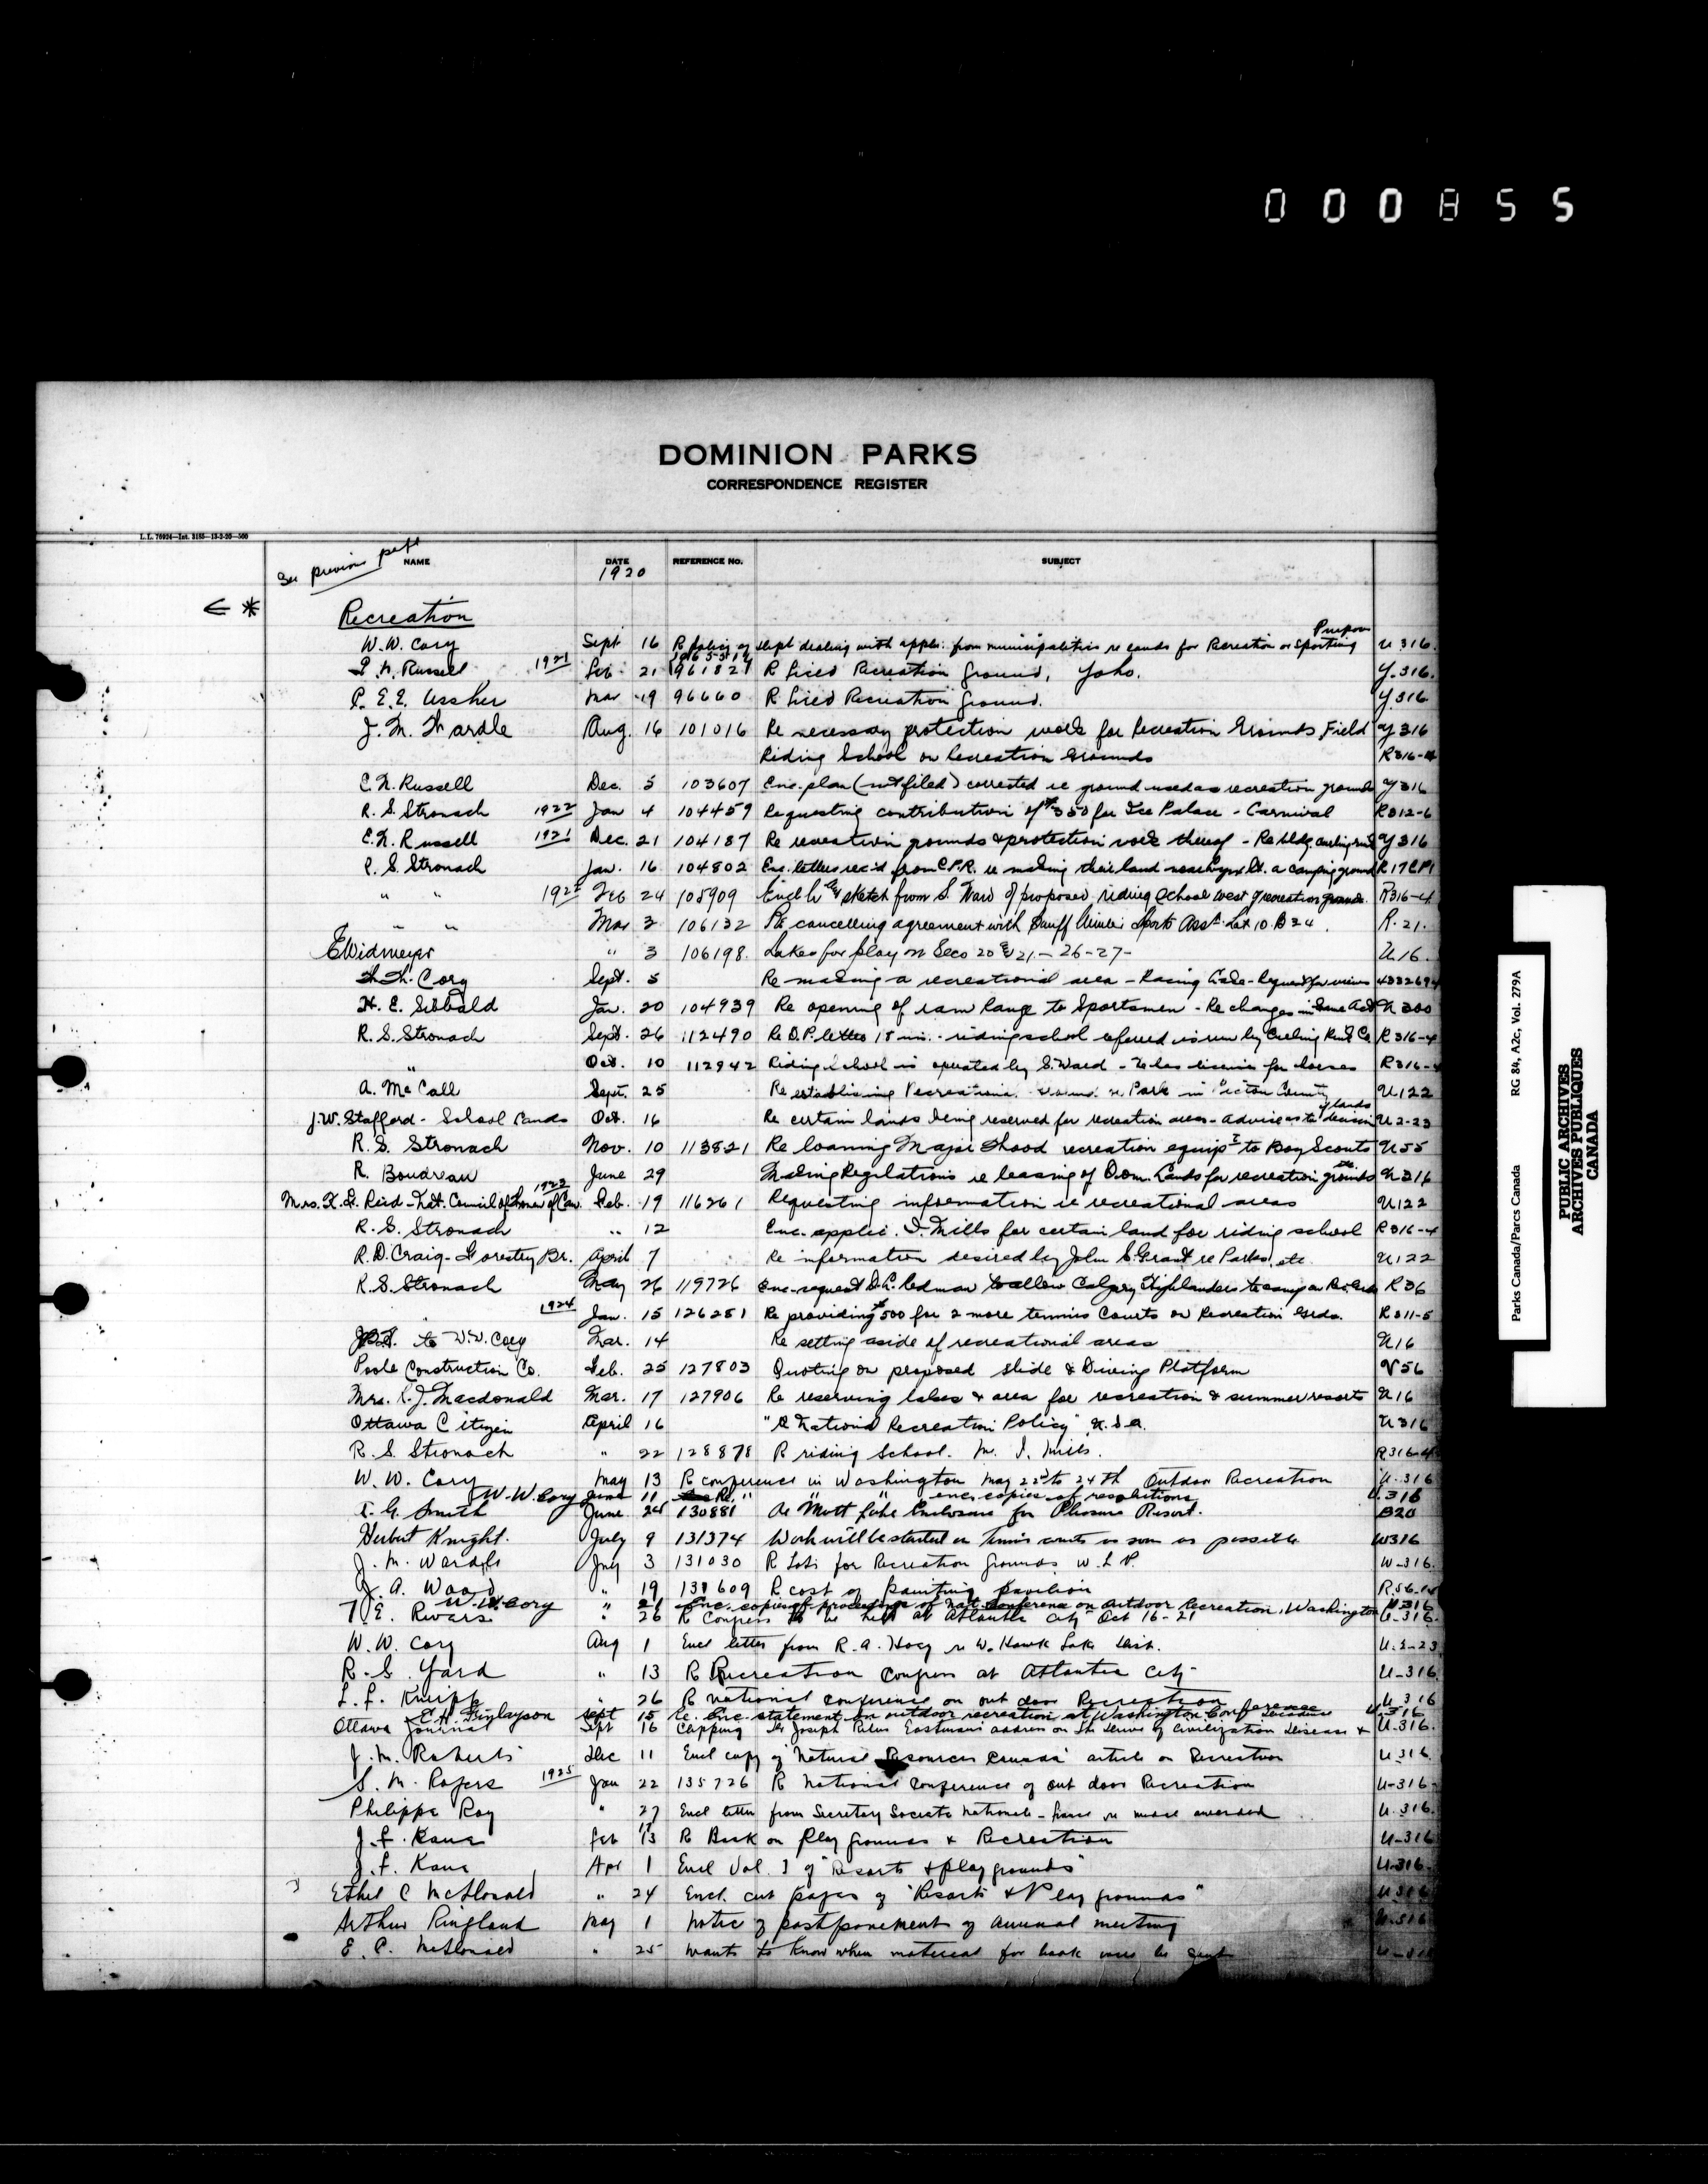 000855
DOMINION PARKS
CORRESPONDENCE REGISTER
L.L. 76924—Int. 3185—13-2-20—500
See previous page
NAME DATE REFERENCE NO. SUBJECT
1920
← *
Recreation
Purposes
W.W. Cory Sept 16 R policy of dept dealing with applic. from municipalities re lands for Recreation or Sporting U 316.
Russell 1921 Feb 21 96182 R Recreation Ground, Yoho. Y.316.
P. E. E. Ussher Mar 19 96660 R Recreation Ground. Y.316
J. M. Wardle Aug. 16 101016 Re necessary protection work for Recreation Grounds Field Y 316
Riding School on Recreation Grounds R316-4
E. N. Russell Dec. 5 103607 Enc. plan (not filed) corrected re ground used as recreation grounds Y 316
R. S. Stronach 1922 Jan 4 104459 Requesting contribution of $350 for Ice Palace - Carnival R312-6
E. N. Russell 1921 Dec. 21 104187 Re recreation grounds & protection work thereof - Re bldg. curling rink Y 316
R. S. Stronach Jan. 16 104802 Enc. letters rec'd from C.P.R. re making their land near a camping ground R17CP1
" " 1922 Feb 24 105909 Encl sketch from S. Ward of proposed riding school west of recreation grounds. R316-4
" " Mar 3 106132 Re cancelling agreement with Banff Winter Sports Assn. Lot 10. B 24. R-21.
Widmeyer " 3 106198. Lakes for play on Secs 20 & 21 - 26-27- U16.
Cory Sept. 5 Re making a recreational area - Request for views
H. E. Sibbald Jan. 20 104939 Re opening of ram range to Sportsmen - Re changes in Game Act U 300
R. S. Stronach Sept. 26 112490 Re D.P. letter 18 ins. - riding school referred is run by Curling Rink Co. R 316-4
" Oct. 10 112942 Riding School is operated by S. Ward - He has license for horses R316-4
A. McCall Sept. 25 Re establishing Recreational Park in Pictou County U122
of lands
J.W. Stafford - School Lands Oct. 16 Re certain lands being reserved for recreation areas - advice as to decision U2-23
R. S. Stronach Nov. 10 113821 Re loaning Major Shood recreation equipt to Boy Scouts U55
R. Boudreau June 29 Making Regulations re leasing of Dom. Lands for recreation grounds etc. U316
Mrs. Reid - Nat. Council of Women of Can. 1923 Feb. 19 116261 Requesting information re recreational areas U122
R. S. Stronach " 12 Enc. applic. I. Mills for certain land for riding school R316-4
R. D. Craig - Forestry Br. April 7 Re information desired by John S. Grant re Parks, etc U122
R. S. Stronach May 26 119726 Enc. request D. L. Redman to allow Calgary Highlanders to camp on Rec. Grds R36
" 1924 Jan. 15 126251 Re providing $500 for 2 more tennis Courts on Recreation Grds. R311-5
to W.W. Cory Mar. 14 Re setting aside of recreational areas U16
Poole Construction Co. Feb. 25 127803 Quoting on proposed slide & Diving Platform V56
Mrs. R. J. Macdonald Mar. 17 127906 Re reserving lakes & area for recreation & summer resorts U16
Ottawa Citizen April 16 "A National Recreation Policy" U.S.A. U316
R. S. Stronach " 22 128878 R riding School. M. I. Mills. R316-4
W. W. Cory May 13 R conference in Washington May 22nd to 24th Outdoor Recreation U-316
W.W. Cory June 11 Re. " " " enc. copies of resolutions U.316
G. Smith June 24 130881 Re Mott Lake Enclosure for Pleasure Resort. B20
Herbert Knight. July 9 131374 Work will be started on tennis courts as soon as possible W316
J. M. Wardle July 3 131030 R Lots for Recreation Grounds W. L. P. W-316.
J. A. Wood " 19 131609 R cost of painting pavilion R.56-
W.W. Cory " 21 Enc. copies of proceedings of Nat. Conference on Outdoor Recreation, Washington U316
T. E. Rivers " 26 R Congress to be held at Atlantic City Oct 16-21 U-316.
W. W. Cory Aug 1 Encl letter from R. A. Hoey re W. Hawk Lake Dist. U.2-23
R. S. Yard " 13 R Recreation Congress at Atlantic City U-316
L. F. Kneipp " 26 R national conference on out door Recreation U.316
E.H. Finlayson Sept 15 Re. Enc. statement on outdoor recreation at Washington Conference U.316
Ottawa Journal Sept 16 Clipping Joseph Eastman's address on Civilization Disease & U.316.
J. M. Roberts Dec 11 Encl copy of "Natural Resources Canada" article on Recreation U 316
S. M. Rogers 1925 Jan 22 135726 R National Conference of out door Recreation U-316-
Philippe Roy " 27 Encl letter from Secretary Societe Nationale - France re medal awarded U.316.
J. F. Kane Feb 13 R Book on Play grounds & Recreation U-316
J. F. Kane Apr 1 Encl Vol. I of "Resorts & Play grounds" U-316.
Ethel C McDonald " 24 Encl. cut pages of "Resorts & Play grounds" U 316
Arthur Ringland May 1 Notice of postponement of annual meeting U-316
E. C. McDonald " 25 Wants to know when material for book will be sent
Parks Canada/Parcs Canada RG 84, A2c, Vol. 279A
PUBLIC ARCHIVES
ARCHIVES PUBLIQUES
CANADA